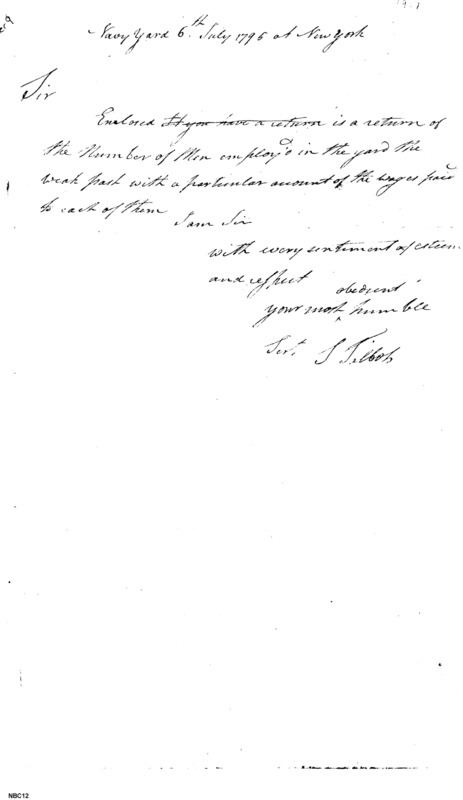 Navy Yard 6th July 1795 at New York
Sir
Enclosed It you have a return is a return of
the Number of Men employ'd in the yard the
weak past with a particular account of the wages paid
to each of them
I am Sir
with every sentiment of esteem
and respect
obedient
your most ^ humble
Servt S Talbot
NBC12